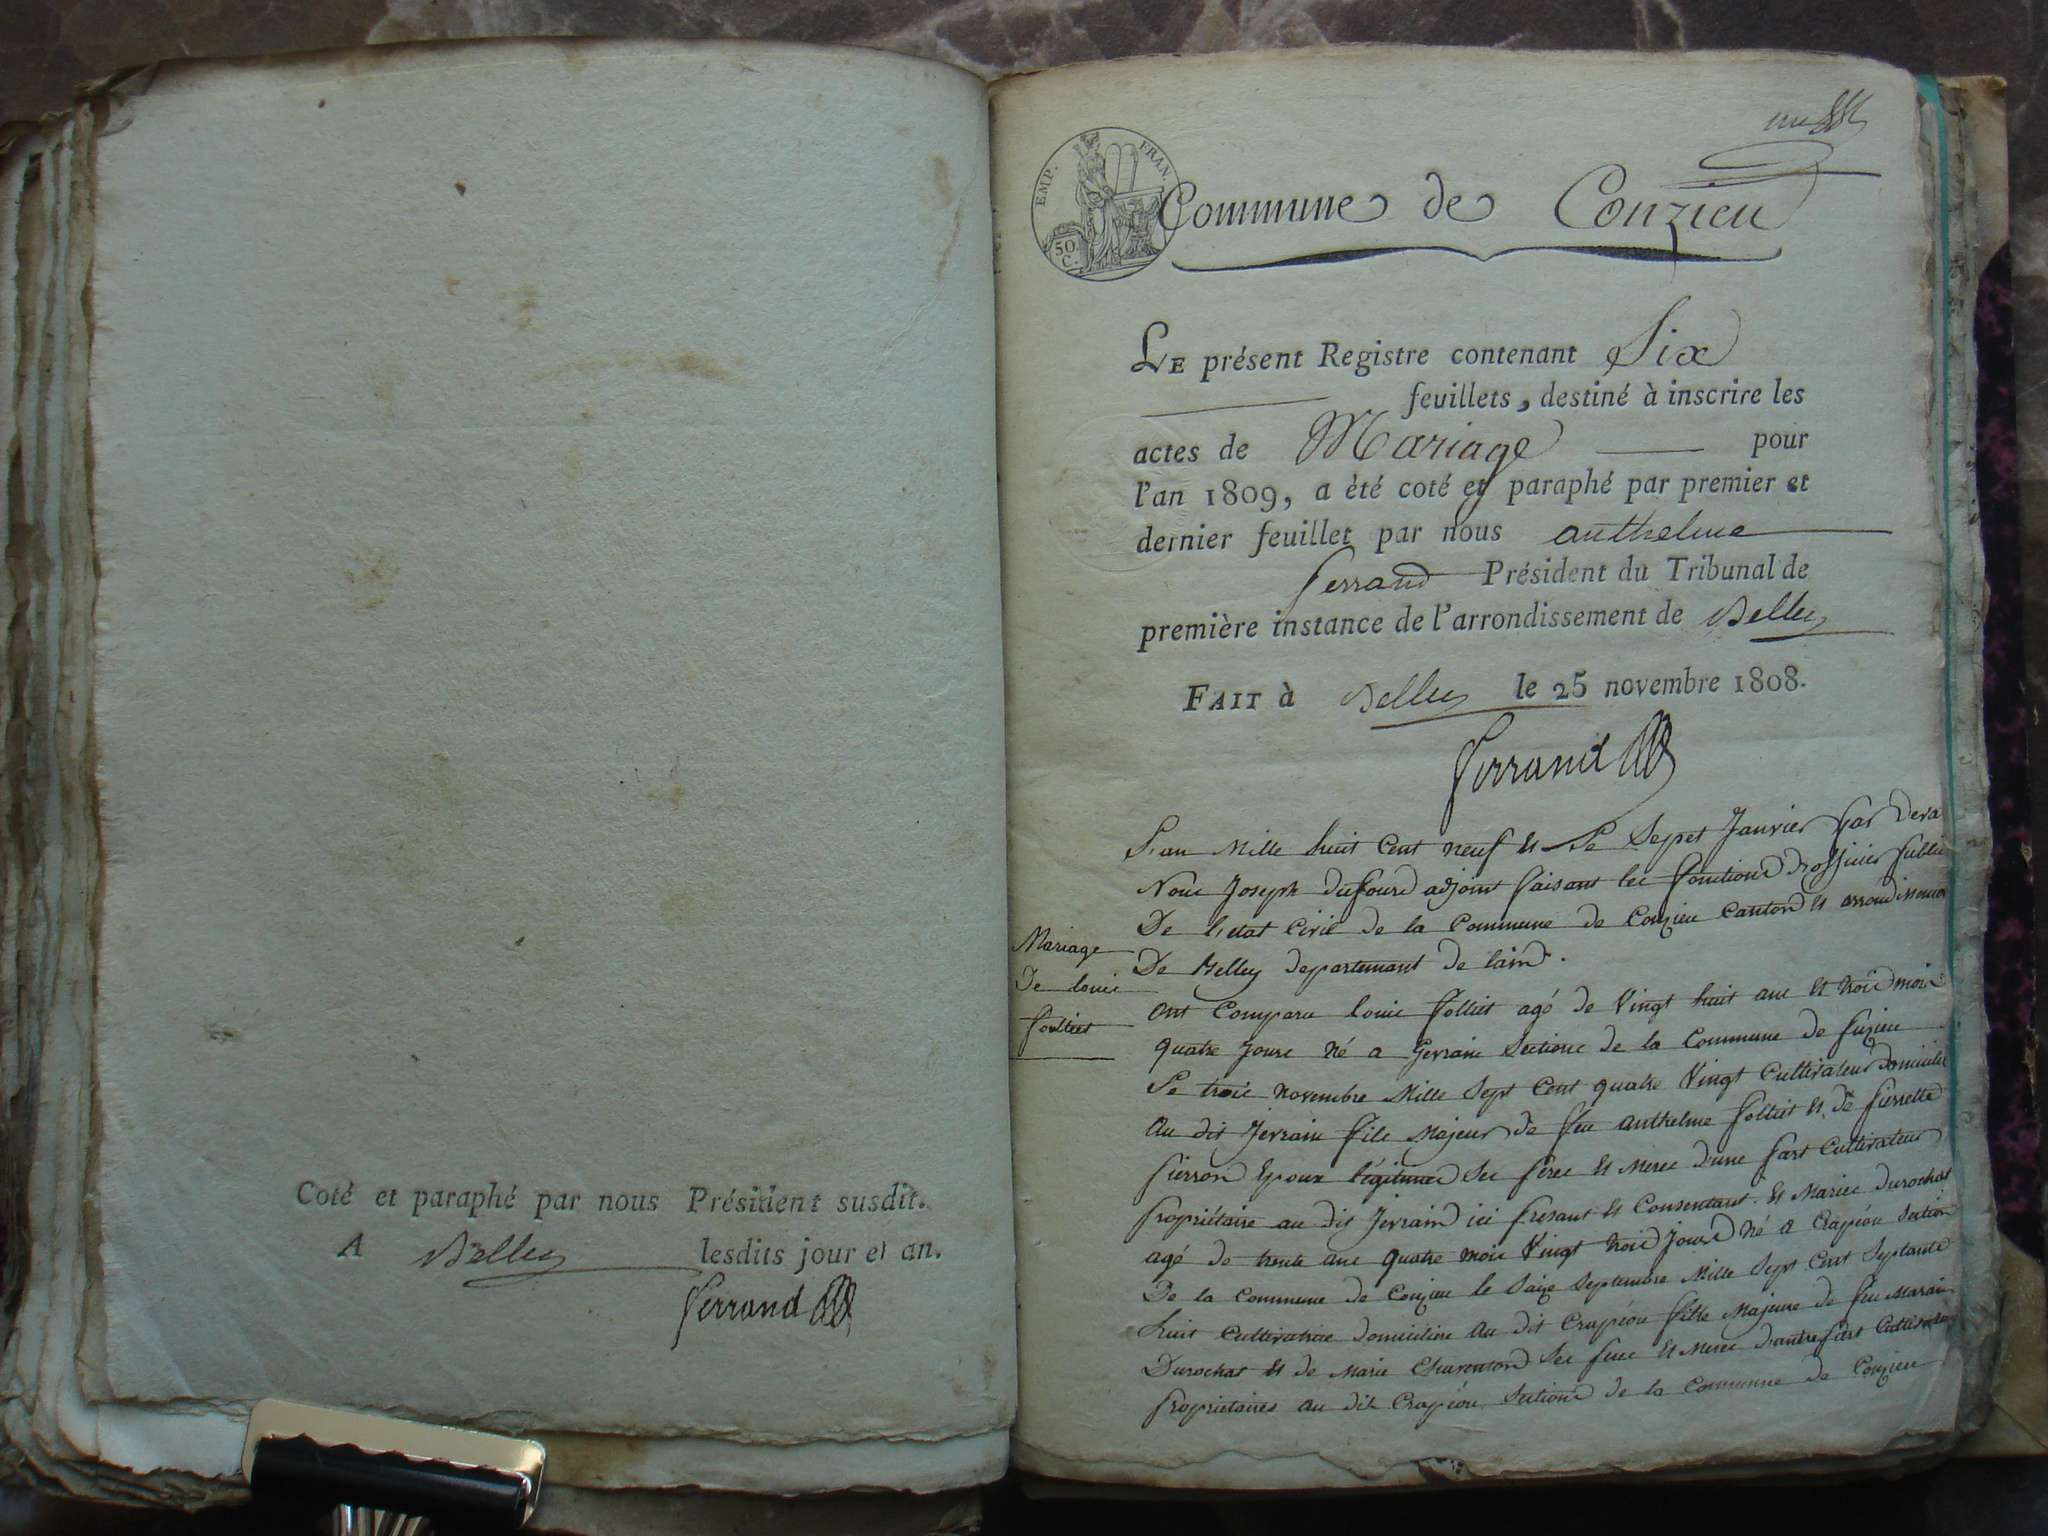 Coté et paraphé par nous Président susdit.
A Belley lesdits jour et an.
Ferrand
EMP. FRAN.
50 C.
Commune de Conzieu
LE présent Registre contenant Six
feuillets, destiné à inscrire les
actes de Mariage pour
l'an 1809, a été coté et paraphé par premier et
dernier feuillet par nous anthelme
ferrand Président du Tribunal de
première instance de l'arrondissement de Belley
FAIT à Belley le 25 novembre 1808.
Ferrand
Mariage
De louis
folliet
L'an Mille huit Cent neuf et Le Sepet Janvier par deva
Nous Joseph dufour adjoint faisant les fonctions d'officier public
De l'etat Civil de la Commune de Conzieu Canton et arrondissemen
De Belley departemant de lain.
Ont Comparu louis folliet agé de Vingt huit ans et trois mois
quatre jours Né a Gevrain Section de la Commune de
Le trois novembre Mille Sept Cent quatre Vingt Cultivateur domicilié
Au dit Jevrain fils Majeur de feu anthelme folliet et de pierrette
pierron Epoux légitimes Ses peres et Meres d'une part Cultivateur
propriétaire au dit Jevrain ici présant et Consentant. et Marie durochat
agé de trente ans quatre mois Vingt trois jours Né a Crapéou Section
De la Commune de Conzieu le Saize Septembre Mille Sept Cent Septante
huit Cultivatrice domiciliere Au dit Crapéou fille Majeure de feu
Durochat et de Marie Charenton Ses peres et Meres d'autre part
propriétaires au dit Crapéou Section de la Commune de Conzieu